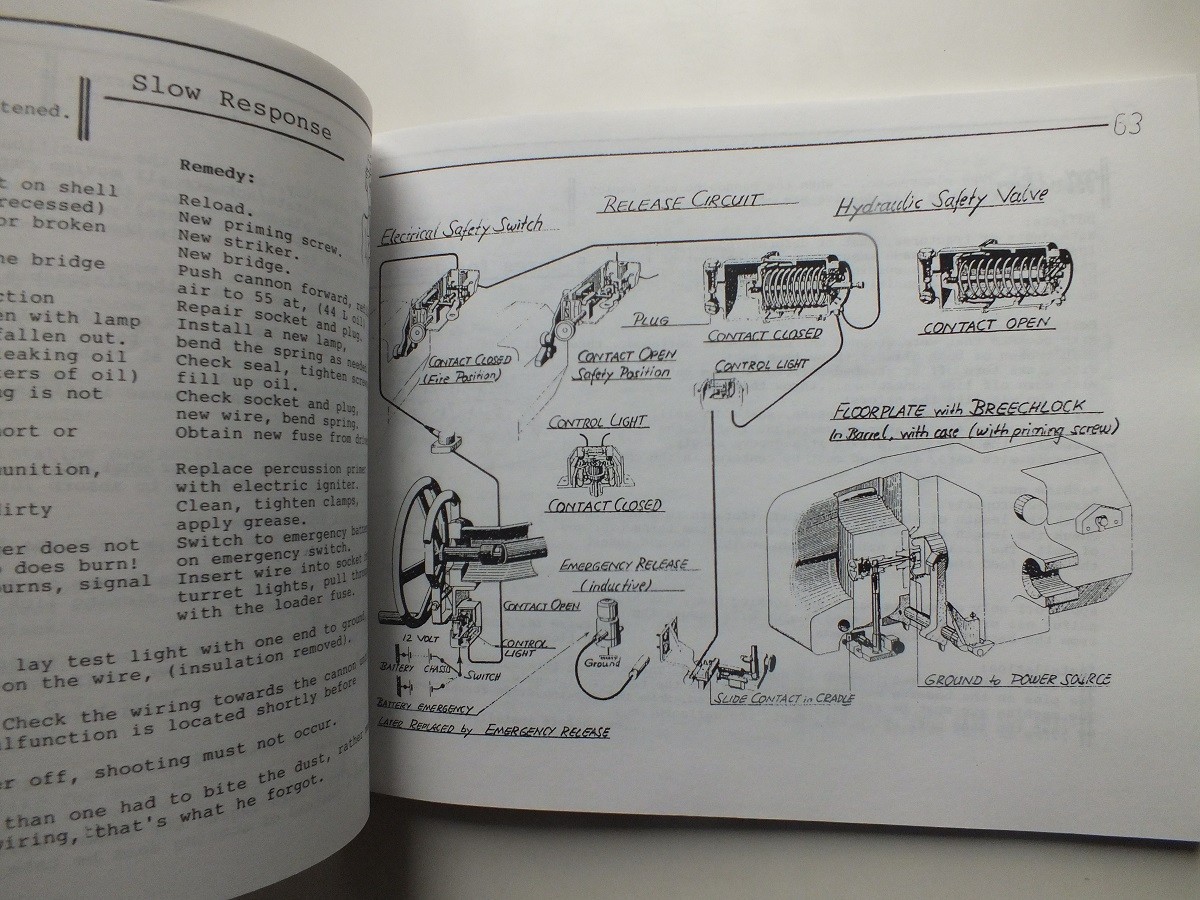 Slow Response
tened.
Remedy:
t on shell
recessed)
or broken
ne bridge
ction
en with lamp
fallen out.
leaking oil
ters of oil)
ug is not
hort or
munition,
dirty
er does not
does burn!
burns, signal
Reload.
New priming screw.
New striker.
New bridge.
Push cannon forward,
air to 55 at, (44 L oil)
Repair socket and plug.
Install a new lamp,
bend the spring as needed
Check seal, tighten screw
fill up oil.
Check socket and plug,
new wire, bend spring.
Obtain new fuse from driv
Replace percussion primer
with electric igniter.
Clean, tighten clamps,
apply grease.
Switch to emergency batte
on emergency switch.
Insert wire into socket
turret lights, pull through
with the loader fuse.
lay test light with one end to ground
on the wire, (insulation removed).
Check the wiring towards the cannon
alfunction is located shortly before
er off, shooting must not occur.
than one had to bite the dust, rather
wiring, that's what he forgot.
63
RELEASE CIRCUIT
Hydraulic Safety Valve
Electrical Safety Switch
PLUG
CONTACT CLOSED
CONTACT OPEN
CONTACT CLOSED
(Fire Position)
CONTACT OPEN
Safety Position
CONTROL LIGHT
CONTROL LIGHT
CONTACT CLOSED
FLOORPLATE with BREECHLOCK
In Barrel, with case (with priming screw)
EMERGENCY RELEASE
(inductive)
CONTACT OPEN
12 VOLT
CONTROL
LIGHT
BATTERY CHASSIS
SWITCH
Ground
BATTERY EMERGENCY
LATER REPLACED by EMERGENCY RELEASE
SLIDE CONTACT in CRADLE
GROUND to POWER SOURCE